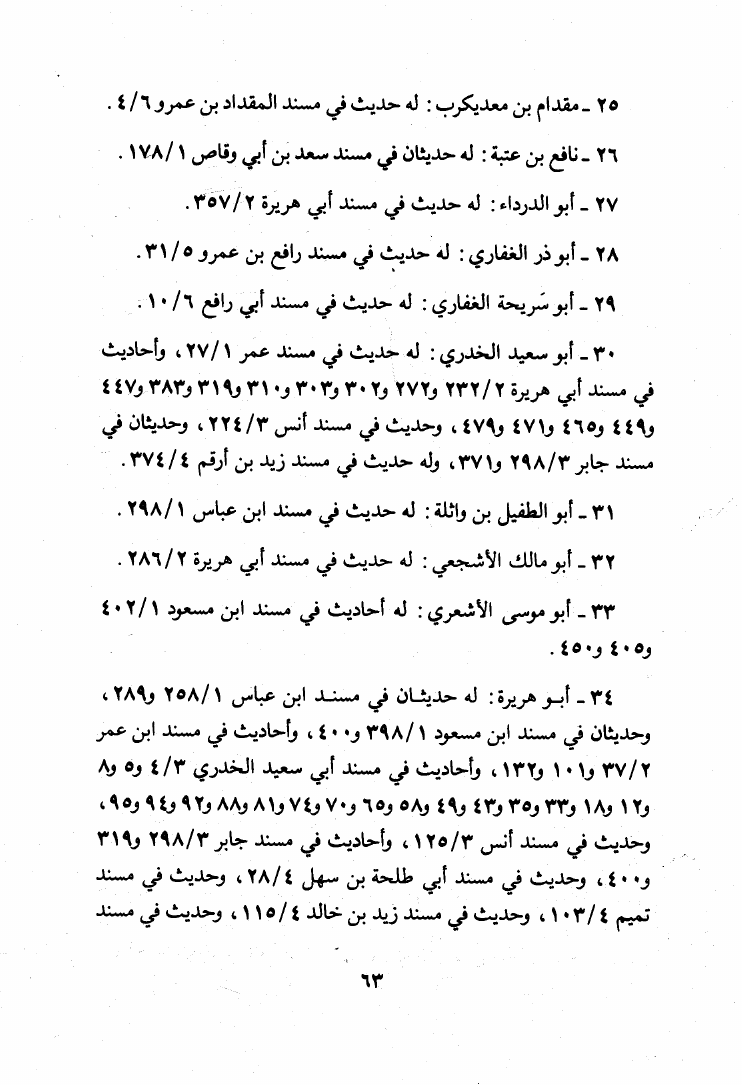 ٢٥ - مقدام بن معديكرب : له حديث في مسند المقداد بن عمرو ٤/٦ .
٢٦ - نافع بن عتبة : له حديثان في مسند سعد بن أبي وقاص ١٧٨/١ .
٢٧ - أبو الدرداء : له حديث في مسند أبي هريرة ٣٥٧/٢ .
٢٨ - أبو ذر الغفاري : له حديث في مسند رافع بن عمرو ٣١/٥ .
٢٩ - أبو سَريحة الغفاري : له حديث في مسند أبي رافع ١٠/٦ .
٣٠ - أبو سعيد الخدري : له حديث في مسند عمر ٢٧/١ ، وأحاديث
في مسند أبي هريرة ٢٣٢/٢ و٢٧٢ و٣٠٢ و٣٠٣ و٣١٠ و٣١٩ و٣٨٣ و٤٤٧
و٤٤٩ و٤٦٥ و٤٧١ و٤٧٩ ، وحديث في مسند أنس ٢٢٤/٣ ، وحديثان في
مسند جابر ٢٩٨/٣ و٣٧١ ، وله حديث في مسند زيد بن أرقم ٣٧٤/٤ .
٣١ - أبو الطفيل بن واثلة : له حديث في مسند ابن عباس ٢٩٨/١ .
٣٢ - أبو مالك الأشجعي : له حديث في مسند أبي هريرة ٢٨٦/٢ .
٣٣ - أبو موسى الأشعري : له أحاديث في مسند ابن مسعود ٤٠٢/١
و٤٠٥ و٤٥٠ .
٣٤ - أبو هريرة : له حديثان في مسند ابن عباس ٢٥٨/١ و٢٨٩ ،
وحديثان في مسند ابن مسعود ٣٩٨/١ و٤٠٠ ، وأحاديث في مسند ابن عمر
٣٧/٢ و١٠١ و١٣٢ ، وأحاديث في مسند أبي سعيد الخدري ٤/٣ و٥ و٨
و١٢ و١٨ و٣٣ و٣٥ و٤٣ و٤٩ و٥٨ و٦٥ و٧٠ و٧٤ و٨١ و٨٨ و٩٢ و٩٤ و٩٥ ،
وحديث في مسند أنس ١٢٥/٣ ، وأحاديث في مسند جابر ٢٩٨/٣ و٣١٩
و٤٠٠ ، وحديث في مسند أبي طلحة بن سهل ٢٨/٤ ، وحديث في مسند
تميم ١٠٣/٤ ، وحديث في مسند زيد بن خالد ١١٥/٤ ، وحديث في مسند
٦٣